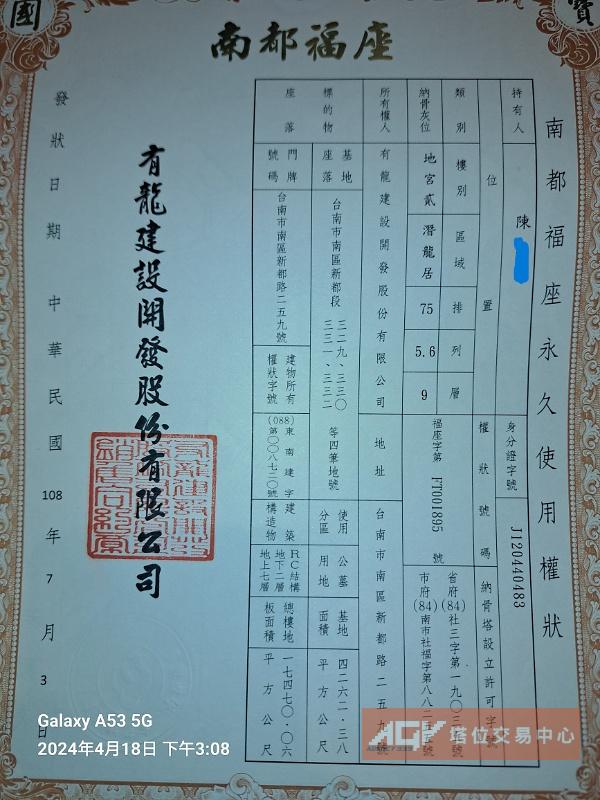 國
寶
南都福座
南都福座永久使用權狀
持有人
陳
身分證字號
J120440483
位置
權狀號碼
納骨塔設立許可字號
類別
樓別
區域
排
列
層
納骨灰位
地宮貳
潛龍居
75
5.6
9
福座字第 FT001895 號
省府(84)社三字第一九〇三
市府(84)南市社福字第八八二
字號
所有權人
有龍建設開發股份有限公司
地址
台南市南區新都路二五九號
標的物
座落
基地座落
台南市南區新都段
三二九、三三〇
三三一、三三二
等四筆地號
使用分區
公墓用地
基地面積
四二六二.三八
平方公尺
門牌號碼
台南市南區新都路二五九號
建物所有權狀字號
(088)東南建字
第〇〇八七二〇號
建築構造物
RC結構
地下二層
地上七層
總樓地板面積
一七四七〇.〇六
平方公尺
有龍建設開發股份有限公司
發狀日期 中華民國 108 年 7 月 3 日
Galaxy A53 5G
2024年4月18日 下午3:08
AGY 塔位交易中心